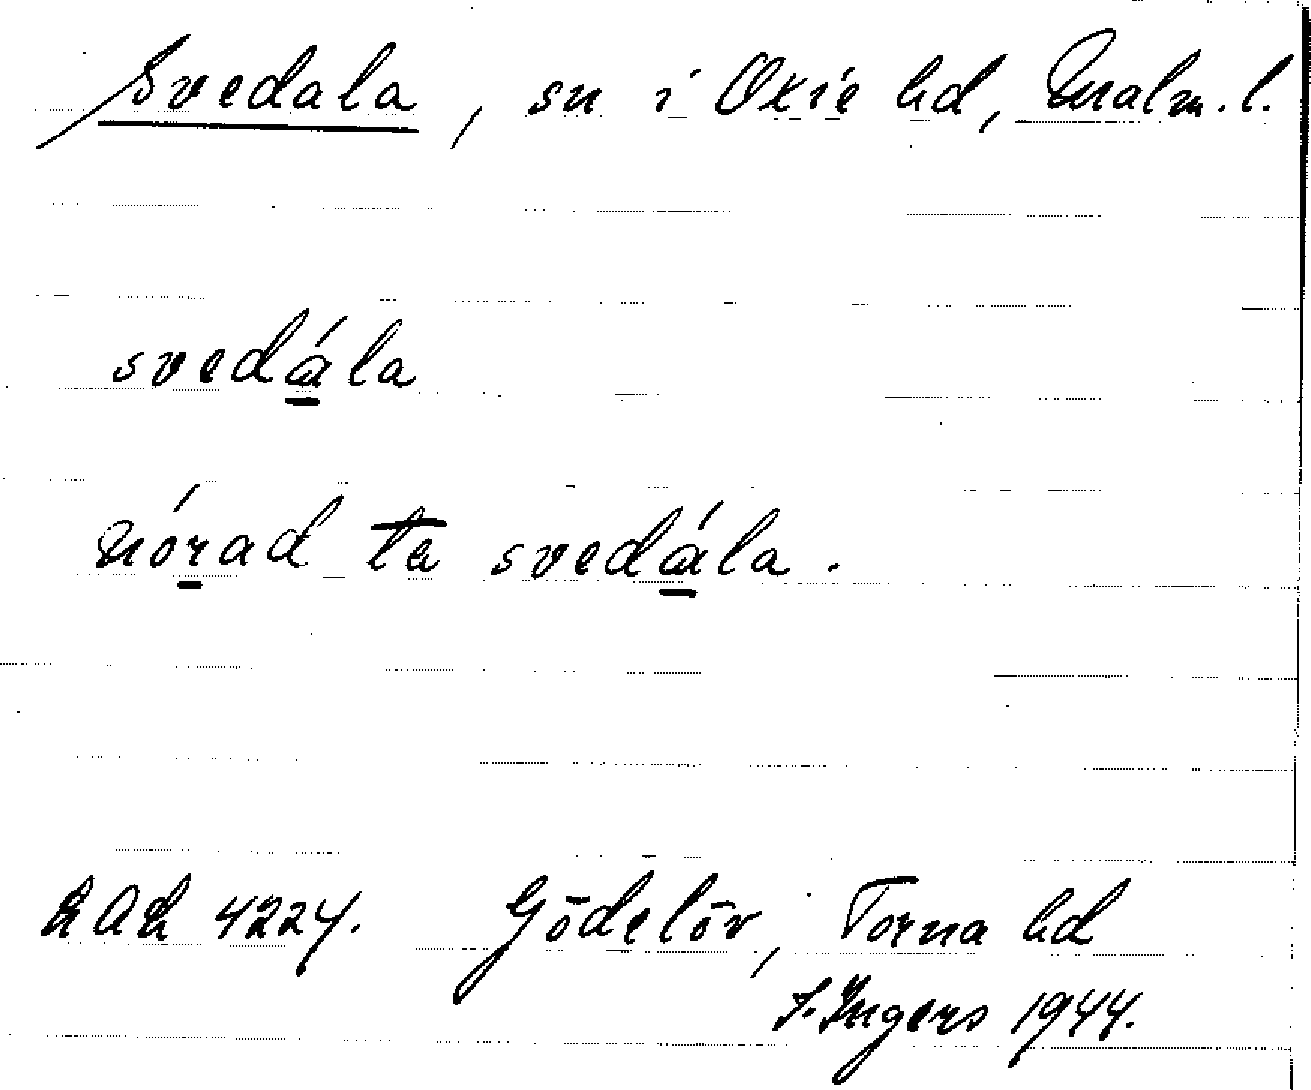 Svedala, sn i Oxie hd, Malm. l.
svedála
nórad te svedála.
LAL 4224. Gödelöv, Torna hd
I. Ingers 1944.